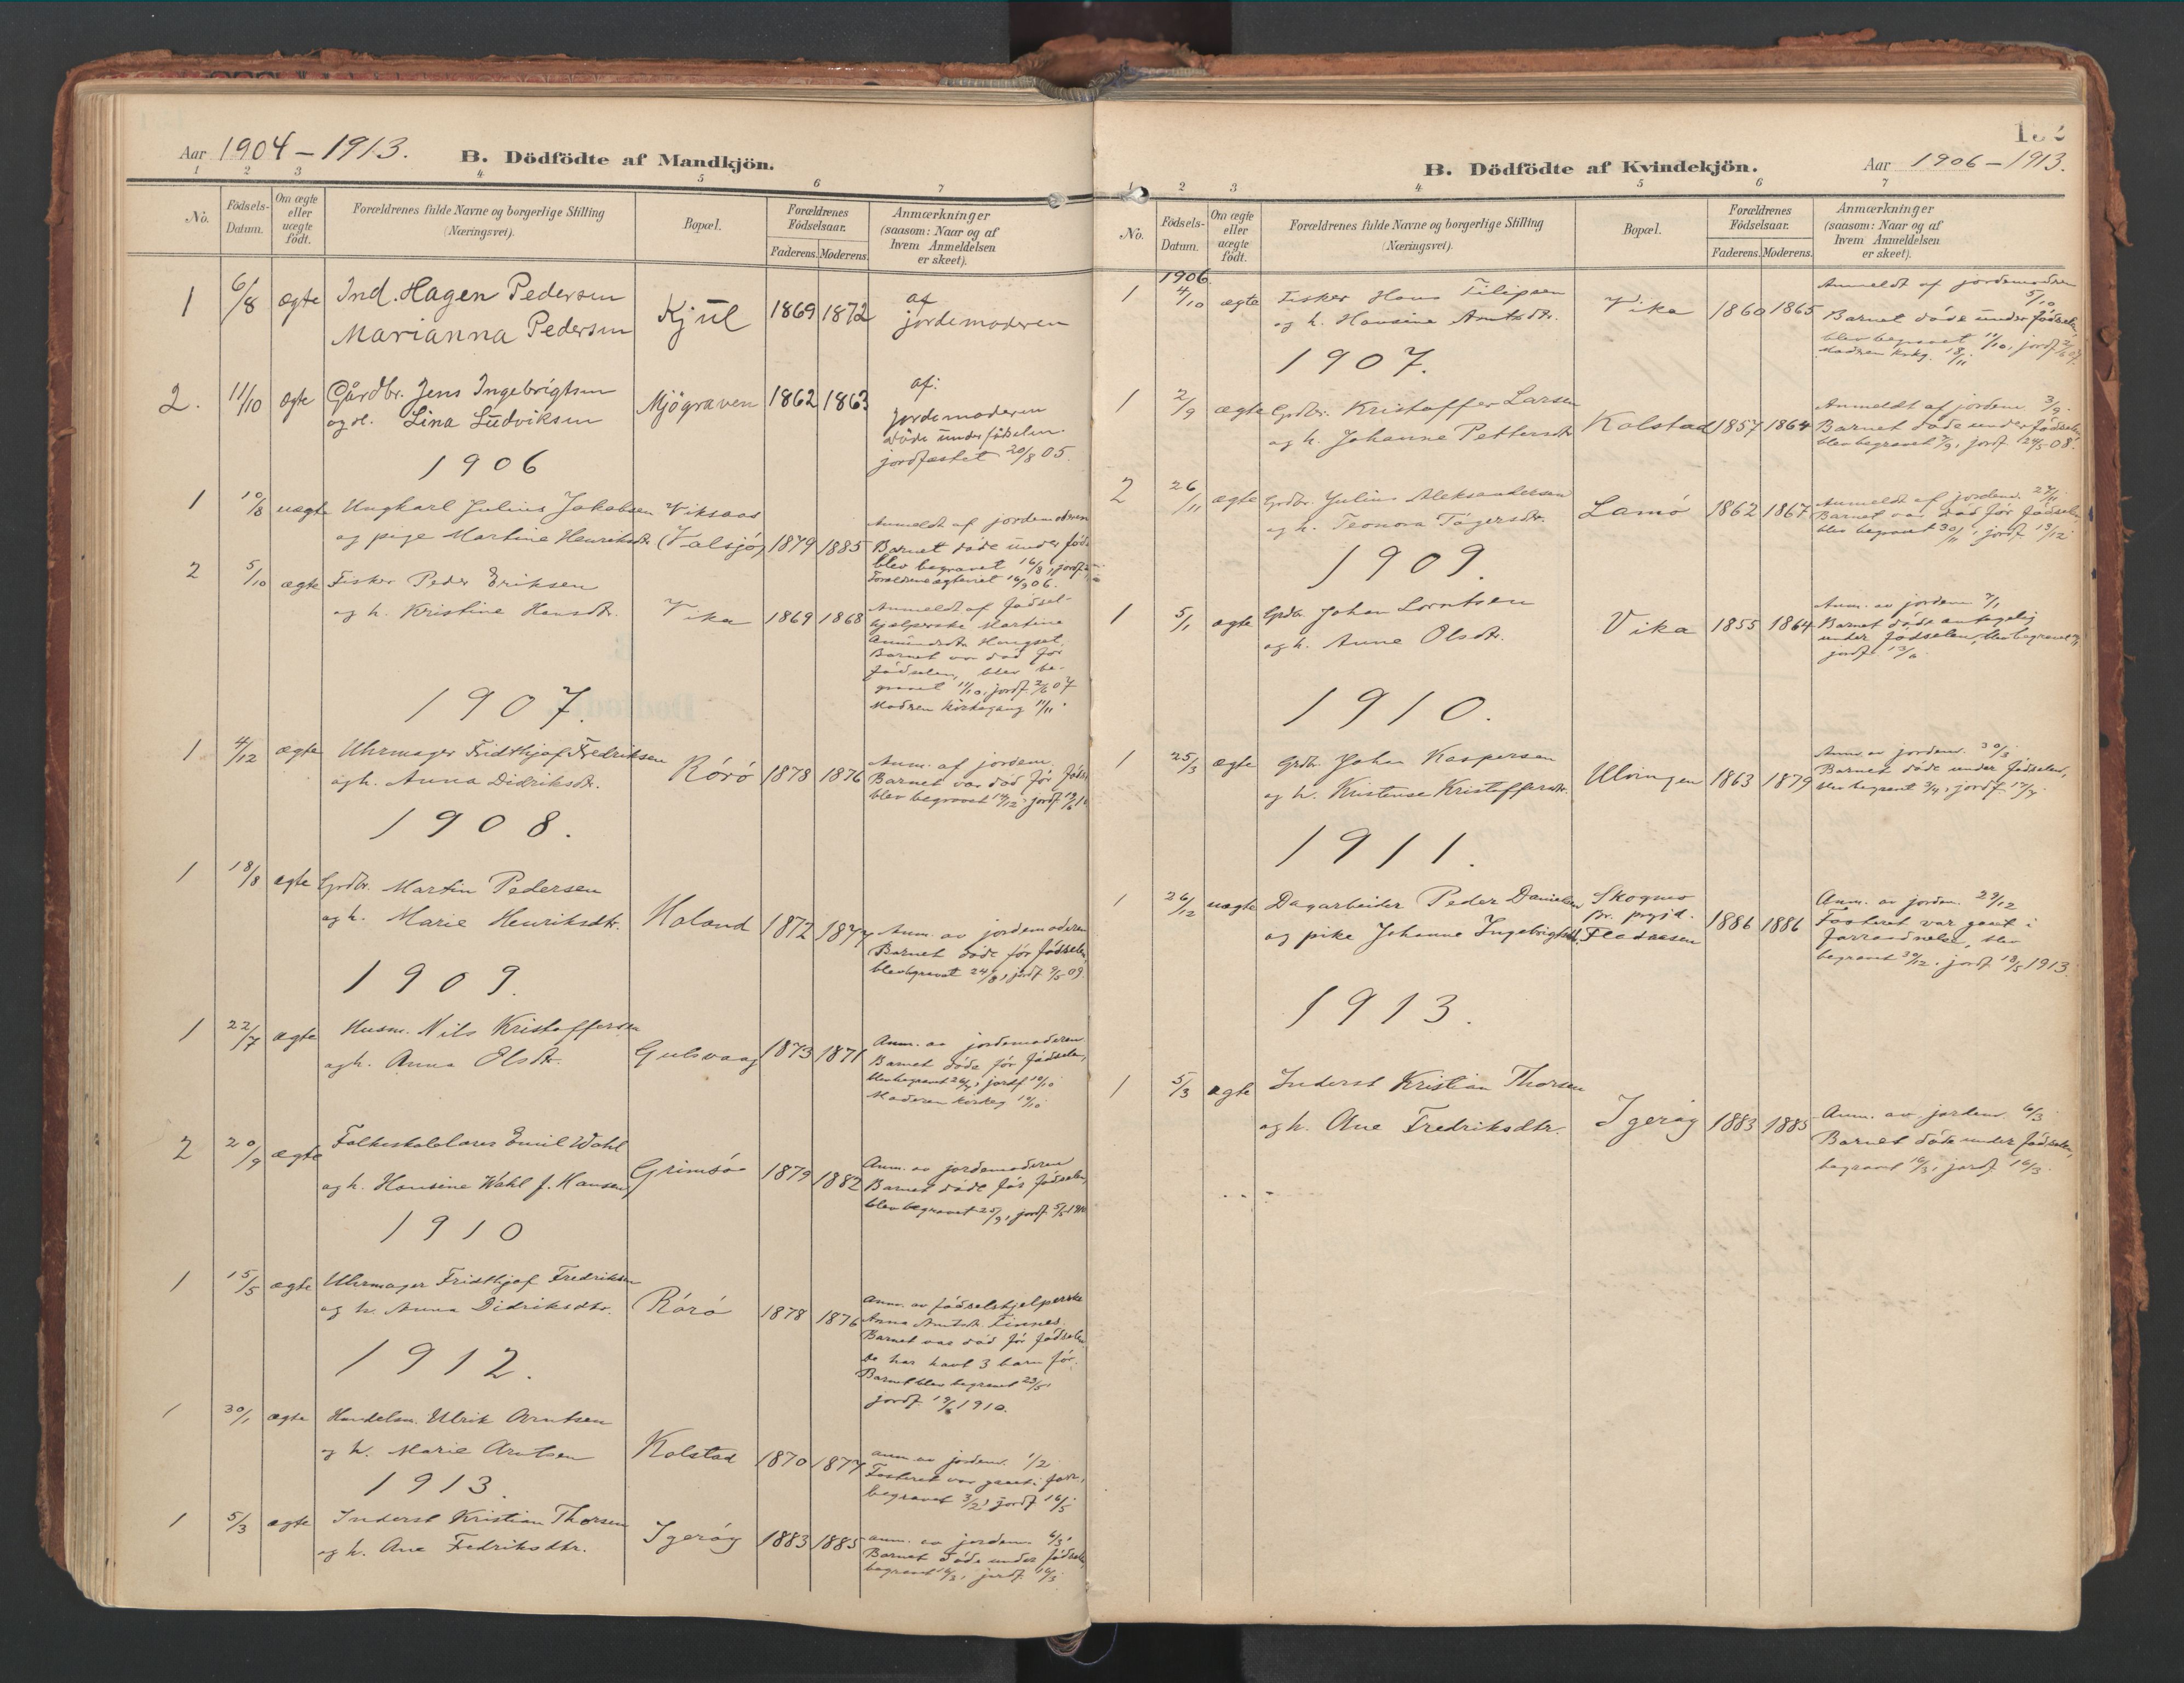 Aar 1904 – 1913.
B. Dödfödte af Mandkjön.
1 2 3 4 5 6 7
No.
Födsels-Datum.
Om ægte eller uægte födt.
Forældrenes fulde Navne og borgerlige Stilling (Næringsvei).
Bopæl.
Forældrenes Födselsaar.
Faderens. Moderens.
Anmærkninger (saasom: Naar og af hvem Anmeldelsen er skeet).
1 6/8 ægte Ind. Hagen Pedersen
Marianna Pedersen
Kjul 1869 1872
af
jordemoderen
2. 11/10 ægte Gårdbr. Jens Ingebrigtsen
og H. Lina Ludviksen
Mjögraven 1862 1863
af:
jordemoderen
döde under födselen.
jordfæstet 20/8 05.
1906
1 10/8 uægte Ungkarl Julius Jakobsen Viksaas
og pige Martine Henriksdtr. (Valsjö) 1879 1885
Anmeldt af jordemodren
Barnet döde under föds
blev begravet 16/8, jordf.
Foreldrene egteviet 16/9 06.
2 5/10 ægte Fisker Peder Eriksen
og h. Kristine Hansdtr. Vika 1869 1868
Anmeldt af födsel-
hjælperske Martine
Amundsdtr. Hongset.
Barnet var död för
födselen, blev be-
gravet 11/10, jordf. 2/6 07
Modren kirkegang 11/11.
1907.
1 4/12 ægte Uhrmager Fridthjof Fredriksen
og h. Anna Didriksdtr. Rörö 1878 1876
Anm. af jordem.
Barnet var död för föds
blev begravet 14/12, jordf.
1908.
1 18/8 ægte Grdbr. Martin Pedersen
og h. Marie Henriksdtr. Holand 1872 1877
Anm. av jordemoderen
Barnet döde för födselen,
blev begravet 24/8, jordf. 9/5 09.
1909.
1 22/7 ægte Husm. Nils Kristoffersen
og h. Anna Olsdtr. Gulsvaag 1873 1871
Anm. av jordemoderen.
Barnet döde för födselen,
blev begravet 26/7, jordf 10/10
Moderen kirkeg 10/10
2 20/9 ægte Folkeskolelærer Emil Wahl
og h. Hansine Wahl f. Hansen Grimsö 1879 1882
Anm. av jordemoderen
Barnet döde för födselen,
blev begravet 25/9, jordf. 5/5 1910
1910
1 15/5 ægte Uhrmager Fridthjof Fredriksen
og h. Anna Didriksdtr. Rörö 1878 1876
Anm. av födselshjelperske
Anna Amtsdtr. Finnes.
Barnet var död för födselen
har havt 3 barn för.
Barnet blev begravet 23/5,
jordf. 19/6 1910.
1912.
1 30/1 ægte Handelsm. Ulrik Arntsen
og h. Marie Arntsen Kolstad 1870 1877
anm. av jordem. 1/2
Fosteret var gaaet i forr.,
begravet 3/2, jordf 16/5
1913.
1 5/3 ægte Inderst Kristian Thorsen
og h. Ane Fredriksdtr. Igeröy 1883 1885
anm. av jordem. 6/3
Barnet döde under födselen,
begravet 16/3, jordf. 16/3
132
B. Dödfödte af Kvindekjön.
Aar 1906 – 1913.
1 2 3 4 5 6 7
No.
Födsels-Datum.
Om ægte eller uægte födt.
Forældrenes fulde Navne og borgerlige Stilling (Næringsvei).
Bopæl.
Forældrenes Födselsaar.
Faderens. Moderens.
Anmærkninger (saasom: Naar og af hvem Anmeldelsen er skeet).
1906
1 4/10 ægte Fisker Hans Filipsen
og h. Hansine Amtsdtr. Vika 1860 1865
Anmeldt af jordemodren
5/10
Barnet döde under födselen,
blev begravet 11/10, jordf 2/6 07.
Modren kirkg. 18/11
1907.
1 2/9 ægte Grdbr. Kristoffer Larsen
og h. Johanne Pettersdtr. Kolstad 1857 1864
Anmeldt af jordem. 3/9.
Barnet döde under födselen
blev begravet 7/9, jordf 24/5 08.
2 26/11 ægte Grdbr. Julius Aleksandersen
og h. Teonora Tögersdtr. Lamö 1862 1867
Anmeldt af jordem. 27/11
Barnet var död för födselen,
blev begravet 30/11, jordf 13/12
1909.
1 5/1 ægte Grdbr. Johan Lorntsen
og h. Anne Olsdtr. Vika 1855 1864
Anm. av jordem. 7/1
Barnet döde antagelig
under födselen, blev begravet
jordf.
1910.
1 25/3 ægte Grdbr. Johan Kaspersen
og h. Kristense Kristoffersdtr. Ulvingen 1863 1879
Anm. av jordem. 30/3.
Barnet döde under födselen,
blev begravet 3/4, jordf. 17/4.
1911.
1 26/12 uægte Dagarbeider Peder Danielsen Skogmo
Br. prgjd.
og pike Johanne Ingebrigtsdtr. Flodaasen 1886 1886
Anm. av jordm. 29/12
Fosteret var gaaet i
forraadnelse, blev
begravet 30/12, jordf 18/5 1913.
1913.
1 5/3 ægte Inderst Kristian Thorsen
og h. Ane Fredriksdtr. Igeröy 1883 1885
Anm. av jordem. 6/3.
Barnet döde under födselen,
begravet 16/3, jordf 16/3.